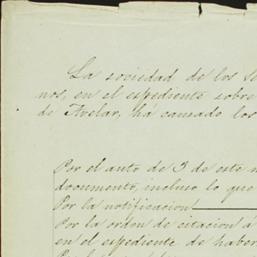 La sociedad de los Se
nos, en el espediente sobre
de Avelar, há causado los
Por el auto de 3 de este m
documento, incluso lo que
Por la notificacion
Por la orden de citacion á
en el espediente de haber